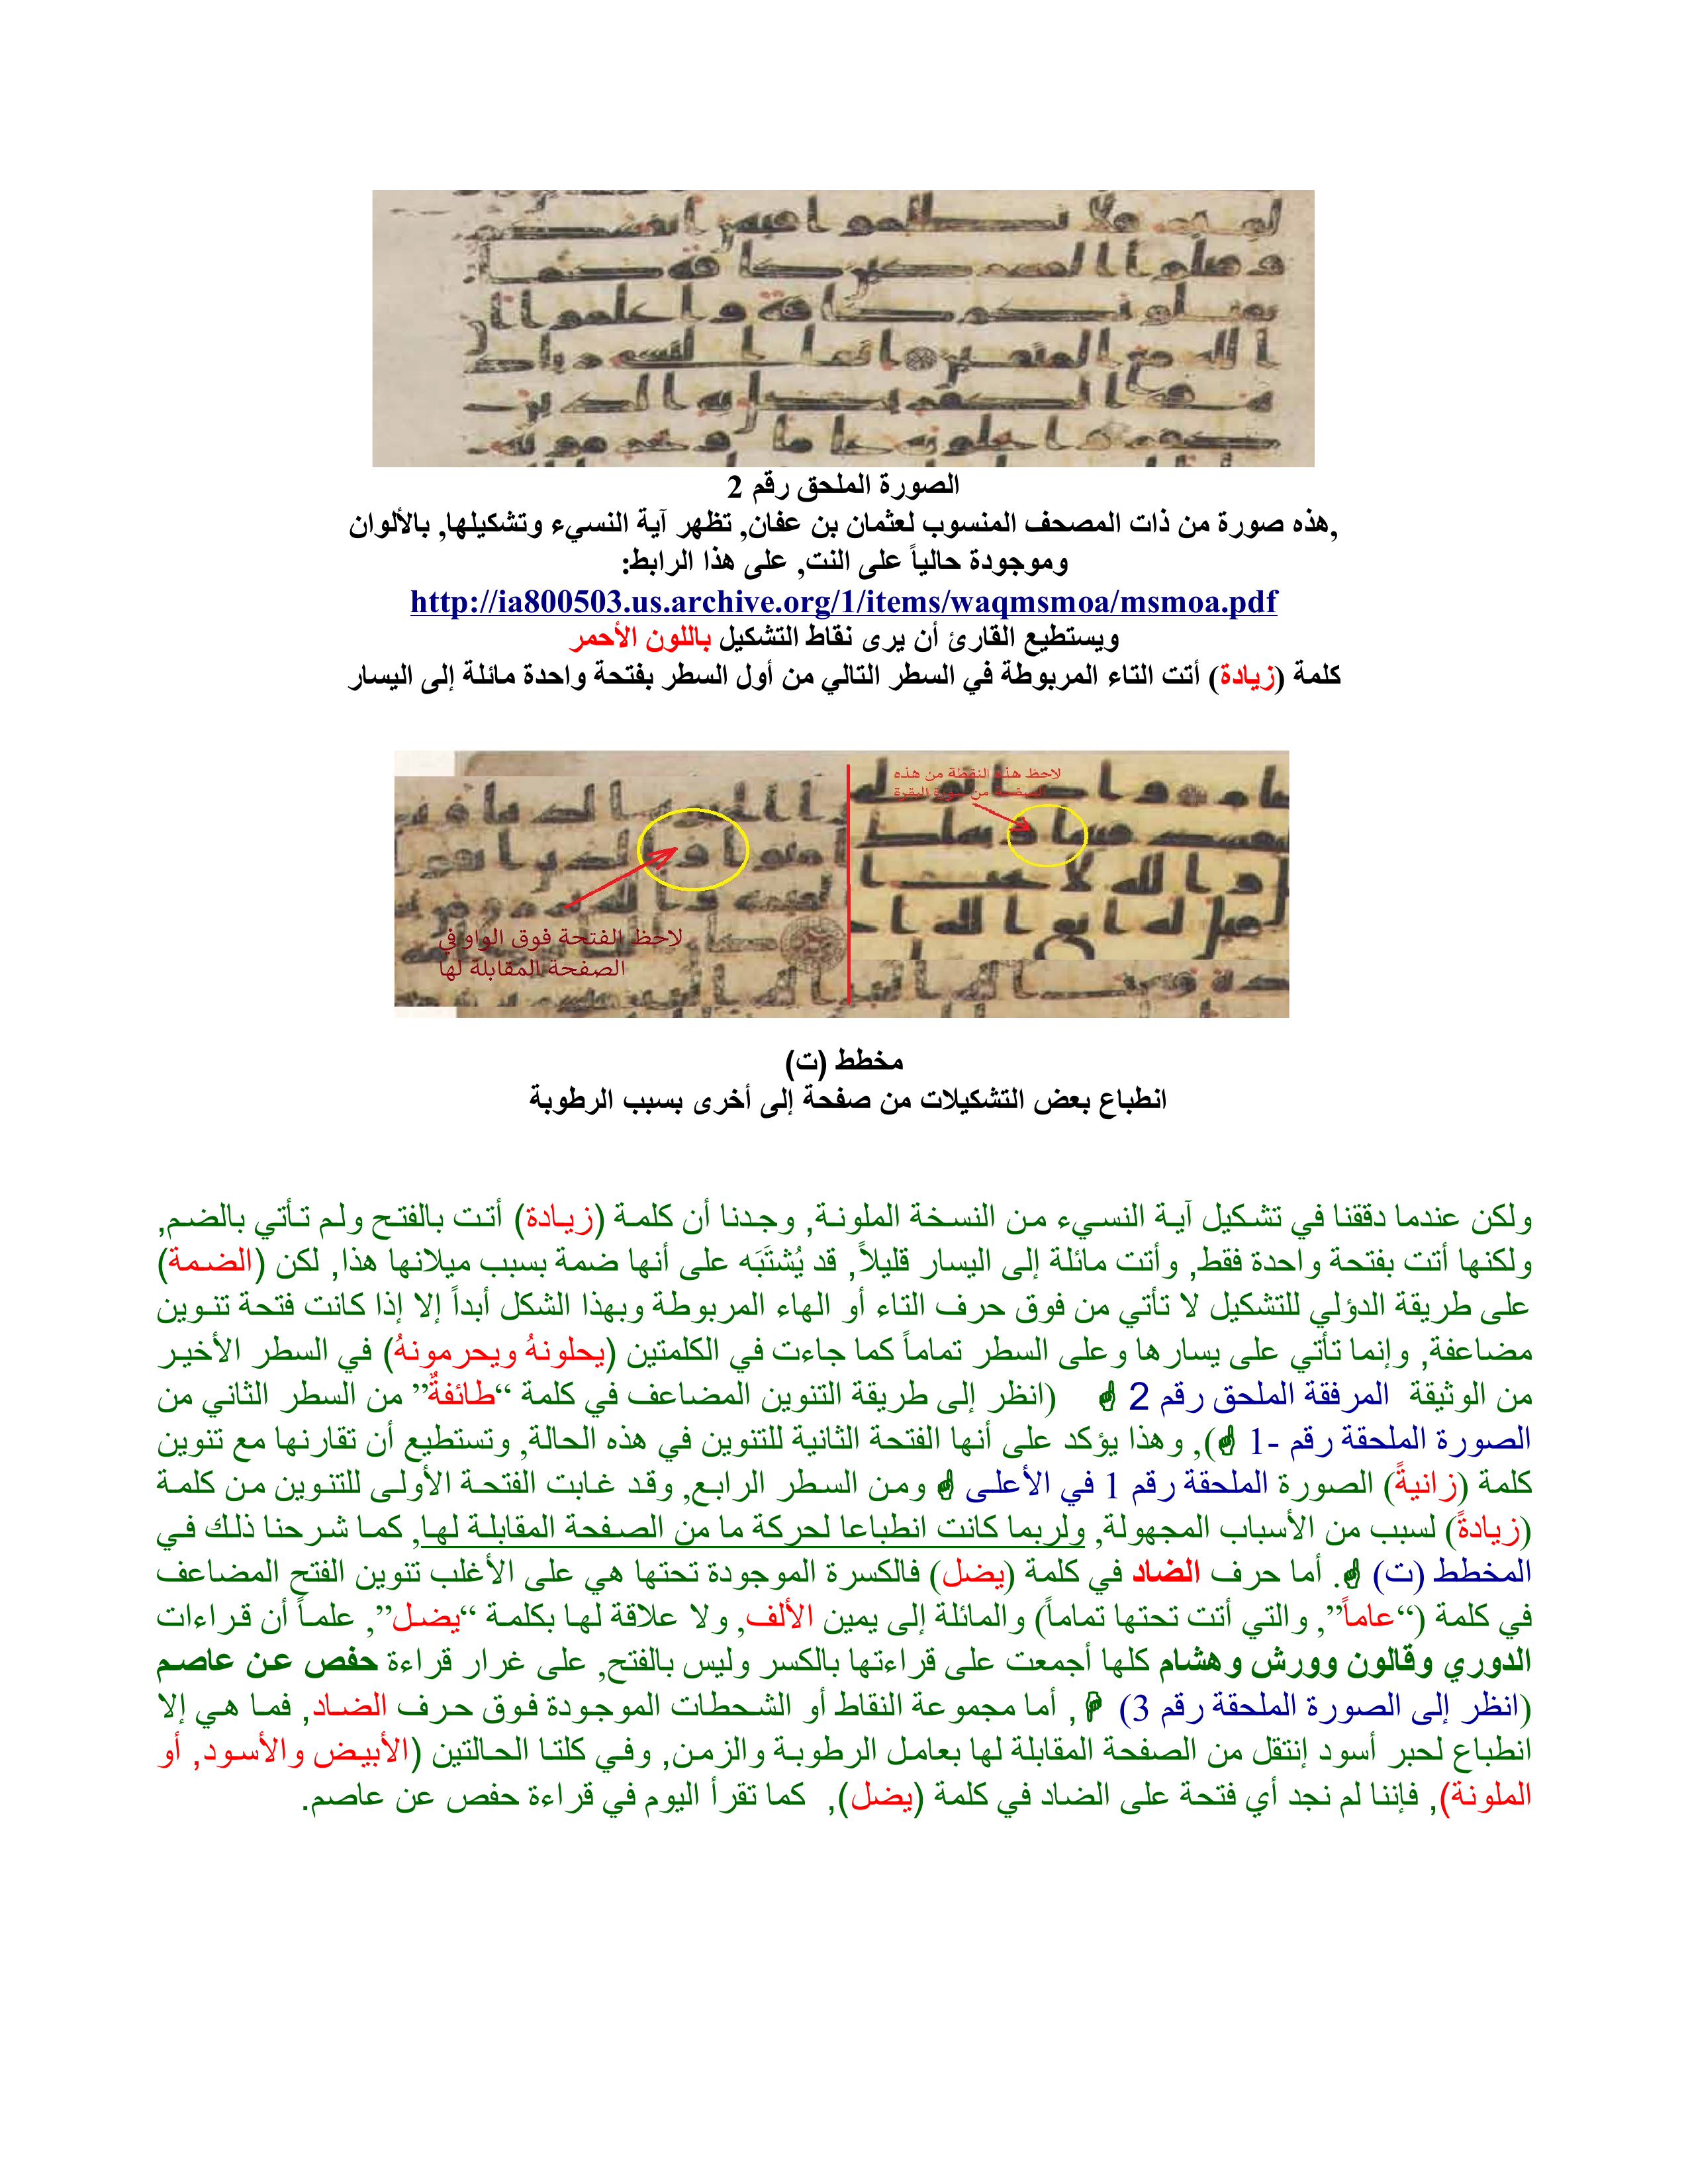 الصورة الملحق رقم 2
هذه صورة من ذات المصحف المنسوب لعثمان بن عفان, تظهر آية النسيء وتشكيلها, بالألوان,
وموجودة حالياً على النت, على هذا الرابط:
http://ia800503.us.archive.org/1/items/waqmsmoa/msmoa.pdf
ويستطيع القارئ أن يرى نقاط التشكيل باللون الأحمر
كلمة (زيادة) أتت التاء المربوطة في السطر التالي من أول السطر بفتحة واحدة مائلة إلى اليسار
لاحظ هذه النقطة من هذه
الصفحة من سورة البقرة
لاحظ الفتحة فوق الواو في
الصفحة المقابلة لها
مخطط (ت)
انطباع بعض التشكيلات من صفحة إلى أخرى بسبب الرطوبة
ولكن عندما دققنا في تشكيل آية النسيء من النسخة الملونة, وجدنا أن كلمة (زيادة) أتت بالفتح ولم تأتي بالضم,
ولكنها أتت بفتحة واحدة فقط, وأتت مائلة إلى اليسار قليلاً, قد يُشتَبَه على أنها ضمة بسبب ميلانها هذا, لكن (الضمة)
على طريقة الدؤلي للتشكيل لا تأتي من فوق حرف التاء أو الهاء المربوطة وبهذا الشكل أبداً إلا إذا كانت فتحة تنوين
مضاعفة, وإنما تأتي على يسارها وعلى السطر تماماً كما جاءت في الكلمتين (يحلونهُ ويحرمونهُ) في السطر الأخير
من الوثيقة المرفقة الملحق رقم 2 (انظر إلى طريقة التنوين المضاعف في كلمة “طائفةٌ” من السطر الثاني من
الصورة الملحقة رقم -1 ), وهذا يؤكد على أنها الفتحة الثانية للتنوين في هذه الحالة, وتستطيع أن تقارنها مع تنوين
كلمة (زانيةً) الصورة الملحقة رقم 1 في الأعلى ومن السطر الرابع, وقد غابت الفتحة الأولى للتنوين من كلمة
(زيادةً) لسبب من الأسباب المجهولة, ولربما كانت انطباعا لحركة ما من الصفحة المقابلة لها, كما شرحنا ذلك في
المخطط (ت) . أما حرف الضاد في كلمة (يضل) فالكسرة الموجودة تحتها هي على الأغلب تنوين الفتح المضاعف
في كلمة (“عاماً”, والتي أتت تحتها تماماً) والمائلة إلى يمين الألف, ولا علاقة لها بكلمة “يضل”, علماً أن قراءات
الدوري وقالون وورش وهشام كلها أجمعت على قراءتها بالكسر وليس بالفتح, على غرار قراءة حفص عن عاصم
(انظر إلى الصورة الملحقة رقم 3) , أما مجموعة النقاط أو الشحطات الموجودة فوق حرف الضاد, فما هي إلا
انطباع لحبر أسود إنتقل من الصفحة المقابلة لها بعامل الرطوبة والزمن, وفي كلتا الحالتين (الأبيض والأسود, أو
الملونة), فإننا لم نجد أي فتحة على الضاد في كلمة (يضل), كما تقرأ اليوم في قراءة حفص عن عاصم.